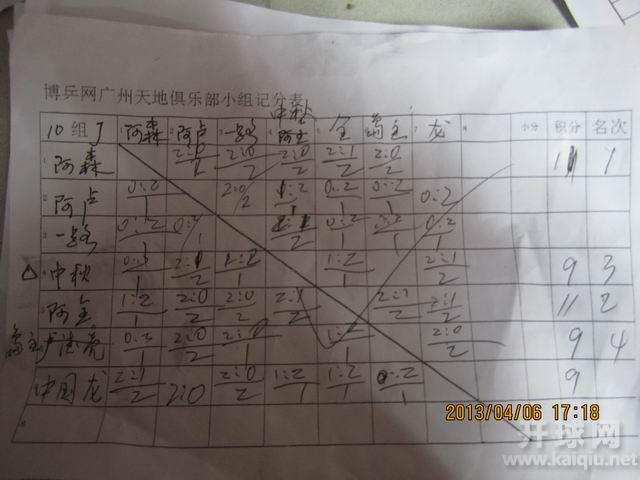 博乒网广州天地俱乐部小组记分表
10组J 1 阿森 2 阿卢 3 一路 4 中秋 阿金 5 金 6 7 龙 8 小分 积分 名次
1 阿森 2:0/2 2:0/2 2:0/2 2:1/2 2:0/2 11 1
2 阿卢 0:2/1 2:0/2 1:2/1 0:2/1 0:2/1 0:2
3 一路 0:2/1 0:2/1 1:2 0:2/1 0:2/1 0:2/1
△ 4 中秋 2:1/2 1:2/1 2:1/2 9 3
5 阿金 1:2/1 2:0/2 2:0/2 2:1/2 2:1/2 2:1/2 11 2
6 0:2/1 2:0/2 2:0 1:2/1 2:0/2 9 4
7 中国龙 2:1/2 2:0 2:0/2 1:2/1 1:2/1 0:2/1 9
8
2013/04/06 17:18
开球网
www.kaiqiu.net